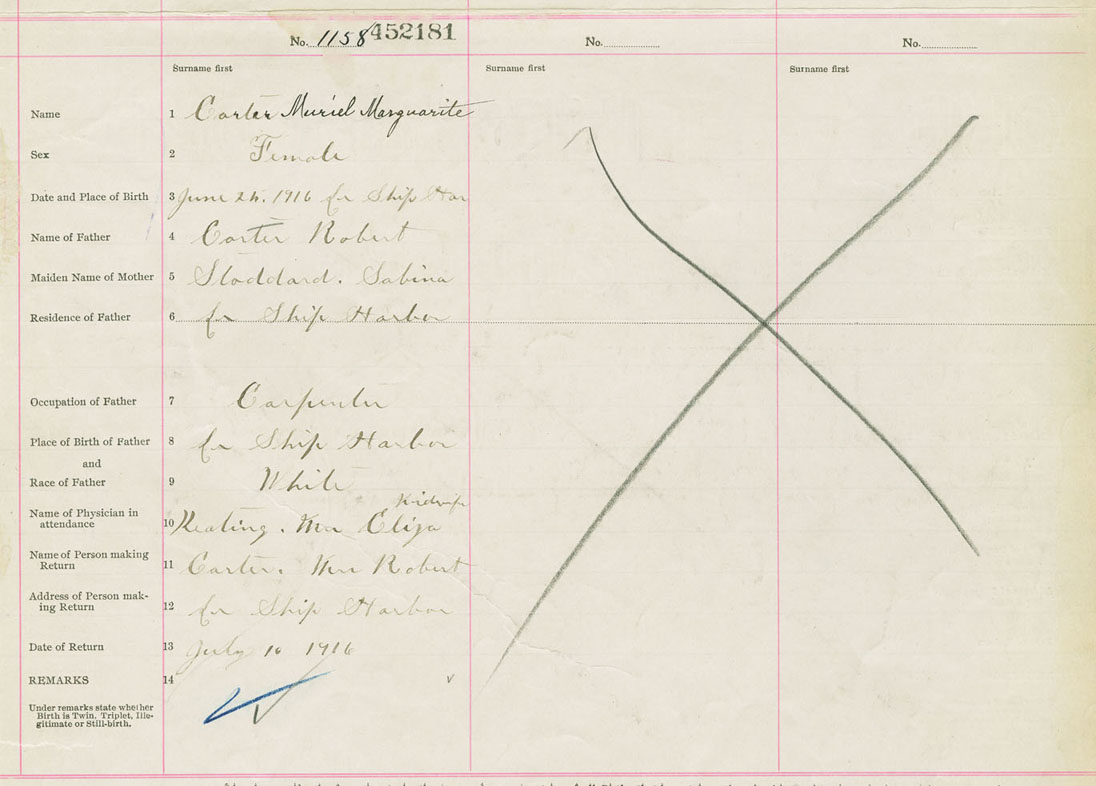 No. 1158 452181 No. No.
Surname first Surname first Surname first
Name 1 Carter Muriel Marguarite
Sex 2 Female
Date and Place of Birth 3 June 24. 1916 Ship Har
Name of Father 4 Carter Robert
Maiden Name of Mother 5 Stoddard. Sabina
Residence of Father 6 Ship Harbor
Occupation of Father 7 Carpenter
Place of Birth of Father 8 Ship Harbor
and
Race of Father 9 White
Name of Physician in
attendance 10 Keating. Mrs Eliza
Name of Person making
Return 11 Carter. Robert
Address of Person mak-
ing Return 12 Ship Harbor
Date of Return 13 July 10 1916
REMARKS 14
Under remarks state whether
Birth is Twin. Triplet, Ille-
gitimate or Still-birth.